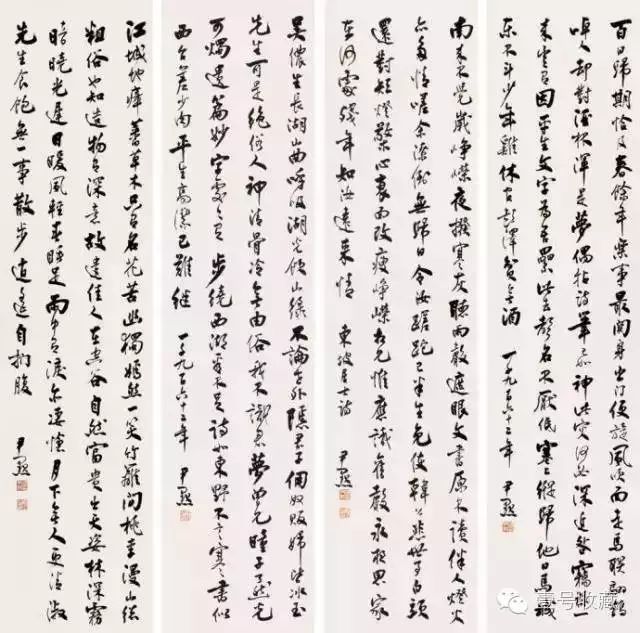 百日歸期恰及春餘年樂事最關身出門便旋風吹面走馬聯翩鵲
啅人却對酒杯渾是夢偶拈詩筆已如神此災何必深追咎竊祿
來豈有因平生文字為吾累此去聲名不厭低塞上縱歸他日馬城
東不鬥少年雞休官彭澤貧無酒 一千九百六十三年 尹默
南來不覺歲崢嶸夜撥寒灰聽雨聲遮眼文書原不讀伴人燈火
亦多情嗟余潦倒無歸日今汝蹉跎已半生免使韓公悲世事白頭
還對短燈檠心衰面改瘦崢嶸相見惟應識舊聲永夜思家
在何處殘年知汝遠來情 東坡居士詩 尹默
吳儂生長湖山曲呼吸湖光飲山綠不論世外隱君子傭奴販婦皆冰玉
先生可是絕俗人神清骨冷無由俗我不識君夢曾見瞳子瞭然光
可燭遺篇妙字處處有步繞西湖看不足詩如東野不言寒書似
西台差少肉平生高潔已難繼 一千九百六十三年 尹默
江城地瘴蕃草木只有名花苦幽獨嫣然一笑竹籬間桃李漫山總
粗俗也知造物有深意故遣佳人在空谷自然富貴出天姿林深霧
暗曉光遲日暖風輕春睡足雨中有淚亦悽愴月下無人更清淑
先生食飽無一事散步逍遙自捫腹 尹默
壹号收藏